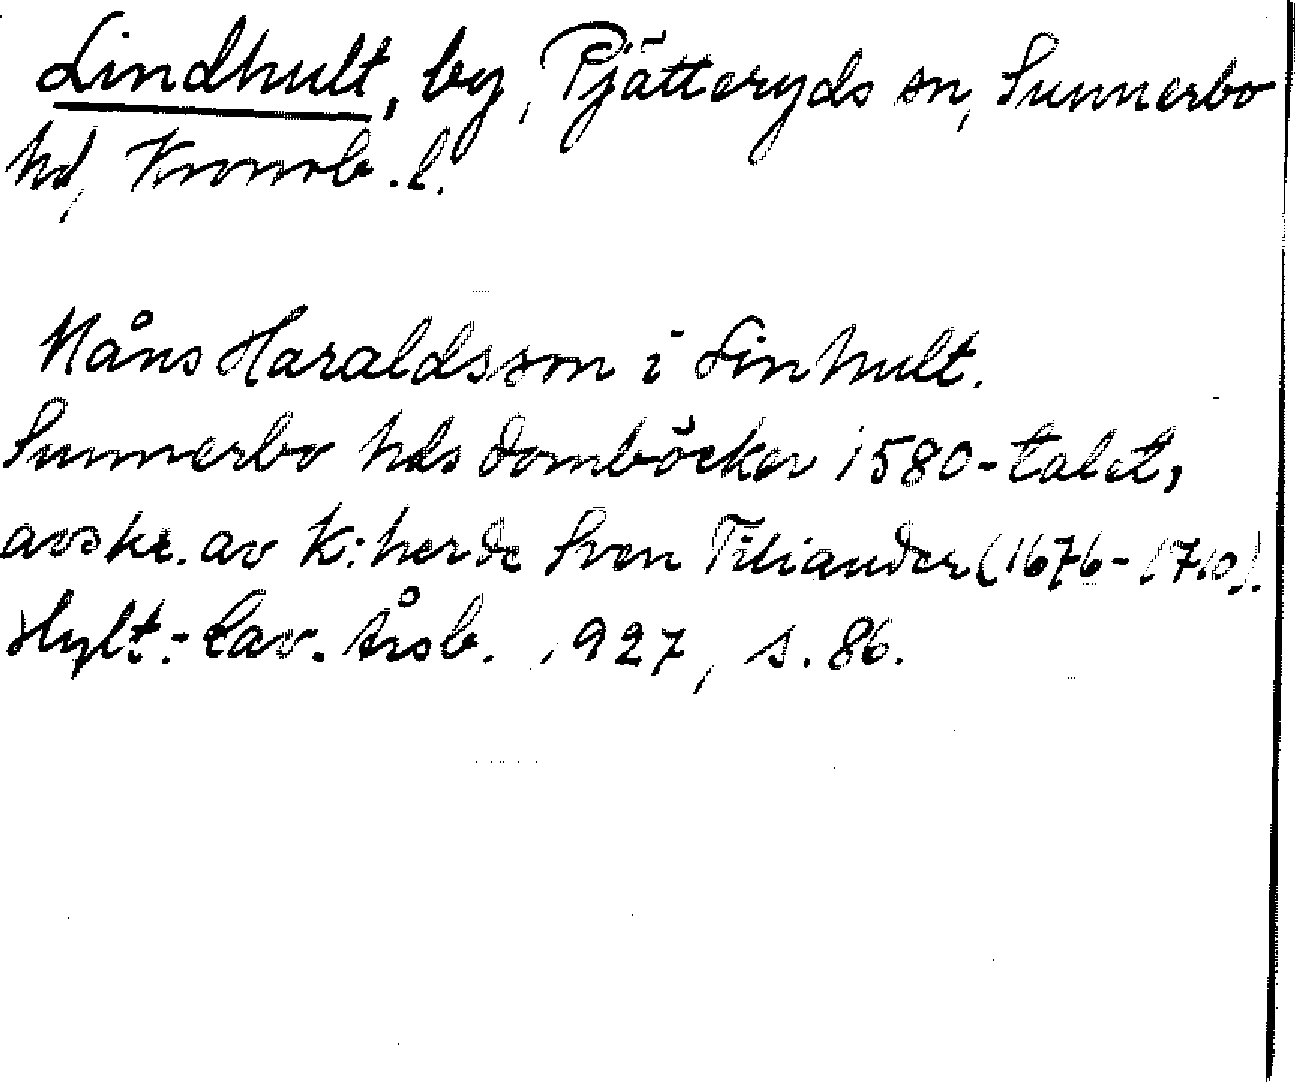 Lindhult, by, Pjätteryds sn, Sunnerbo
hd, Kronob. l.
Måns Haraldsson i Linhult.
Sunnerbo hds domböcker 1580-talet,
avskr. av k:herde Sven Tiliander (1676-1710).
Hylt.-Cav. Årsb. 1927, s. 86.